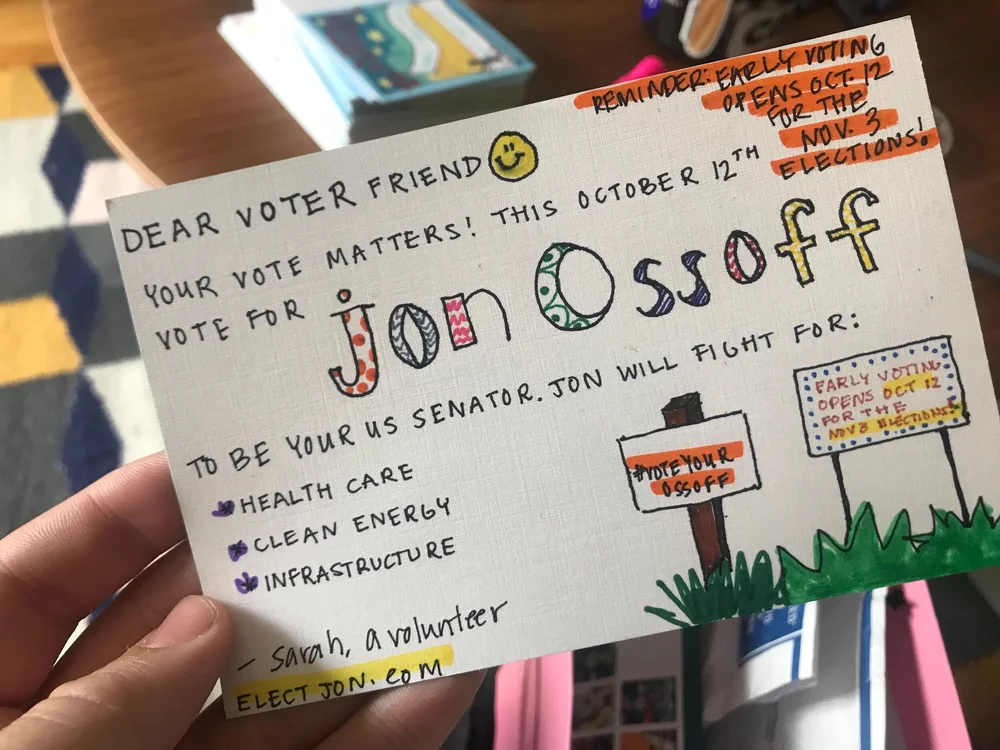 REMINDER: EARLY VOTING
OPENS OCT. 12
FOR THE
NOV. 3
ELECTIONS!
DEAR VOTER FRIEND
YOUR VOTE MATTERS! THIS OCTOBER 12TH
VOTE FOR jon Ossoff
TO BE YOUR US SENATOR. JON WILL FIGHT FOR:
HEALTH CARE
CLEAN ENERGY
INFRASTRUCTURE
#VOTE YOUR
OSSOFF
EARLY VOTING
OPENS OCT 12
FOR THE
NOV 3 ELECTIONS!
- Sarah, a volunteer
ELECTJON.COM